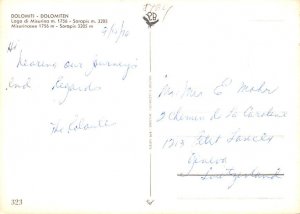 DOLOMITI - DOLOMITEN
Lago di Misurina m. 1756 - Sorapis m. 3205
Misurinasee 1756 m - Sorapis 3205 m
Nearing our journey's
end Regards
The Rolants
Mr Mrs E Mohr
2 Chemin de la Caroline
1213 Petit Lancy
Geneva
Switzerland
323